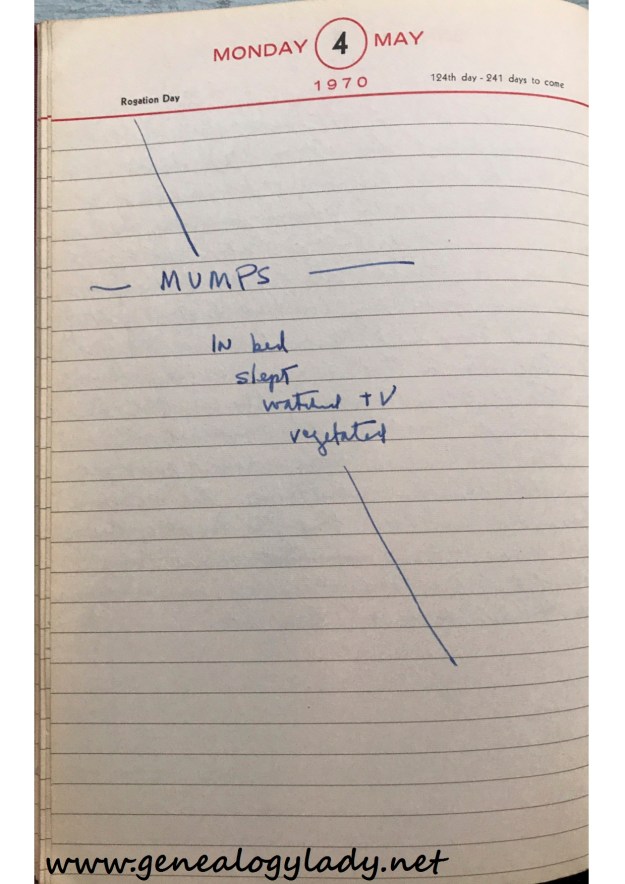 MONDAY 4 MAY
1970
124th day - 241 days to come
Rogation Day
— MUMPS —
IN bed
slept
watched TV
vegetated
www.genealogylady.net